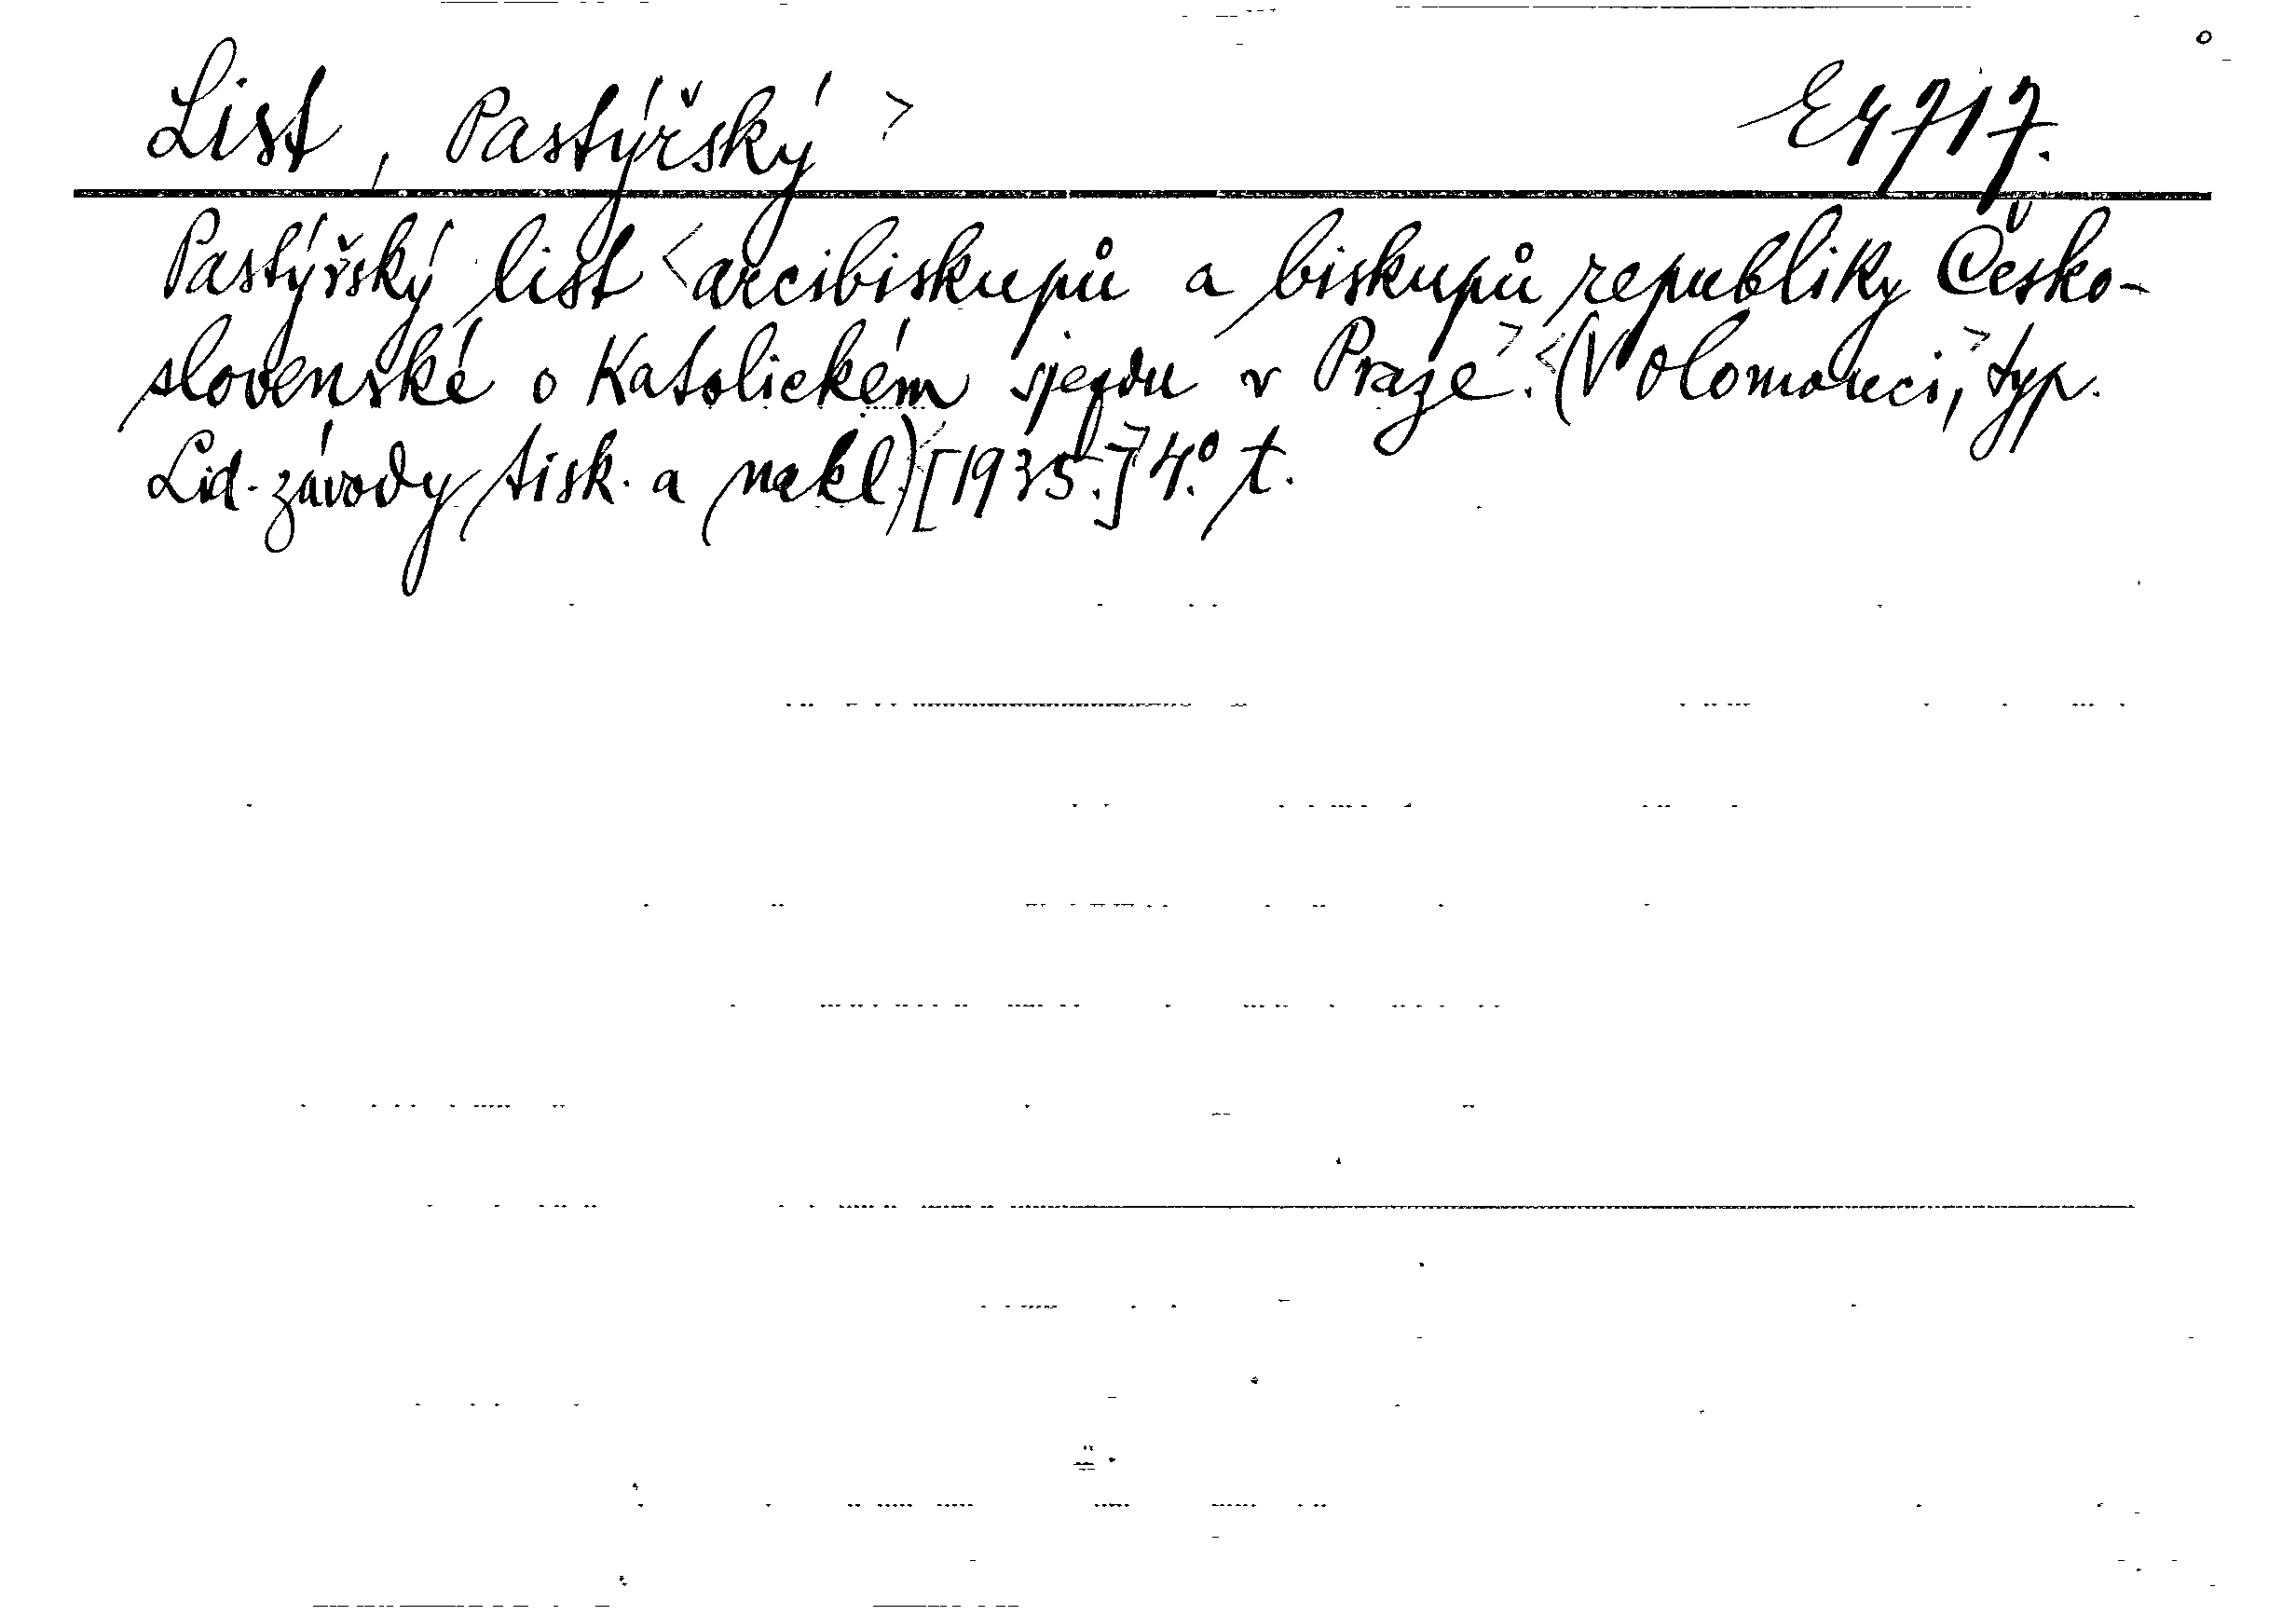 List, Pastýřský > E4717.
Pastýřský list <arcibiskupů a biskupů republiky Česko-
slovenské o Katolickém sjezdu v Praze>. <(V Olomouci,> typ.
Lid. závody tisk. a nakl.) <[1935.]> 4.° t.